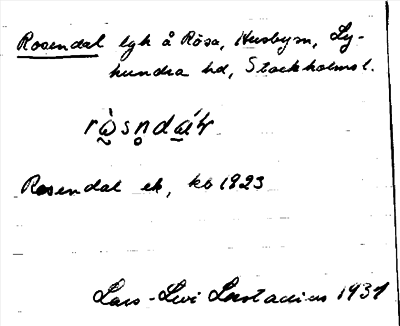 Rosendal lgh å Rösa, Husbysn, Ly-
hundra hd, Stockholmsl.
Rosendal ek, kb 1923
Lars-Levi Læstadius 1931